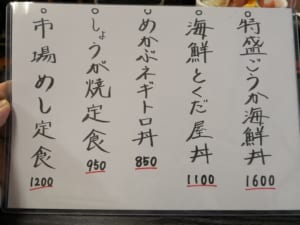 特盛ごうか海鮮丼
1600
海鮮とくだ屋丼
1100
めかぶネギトロ丼
850
しょうが焼定食
950
市場めし定食
1200